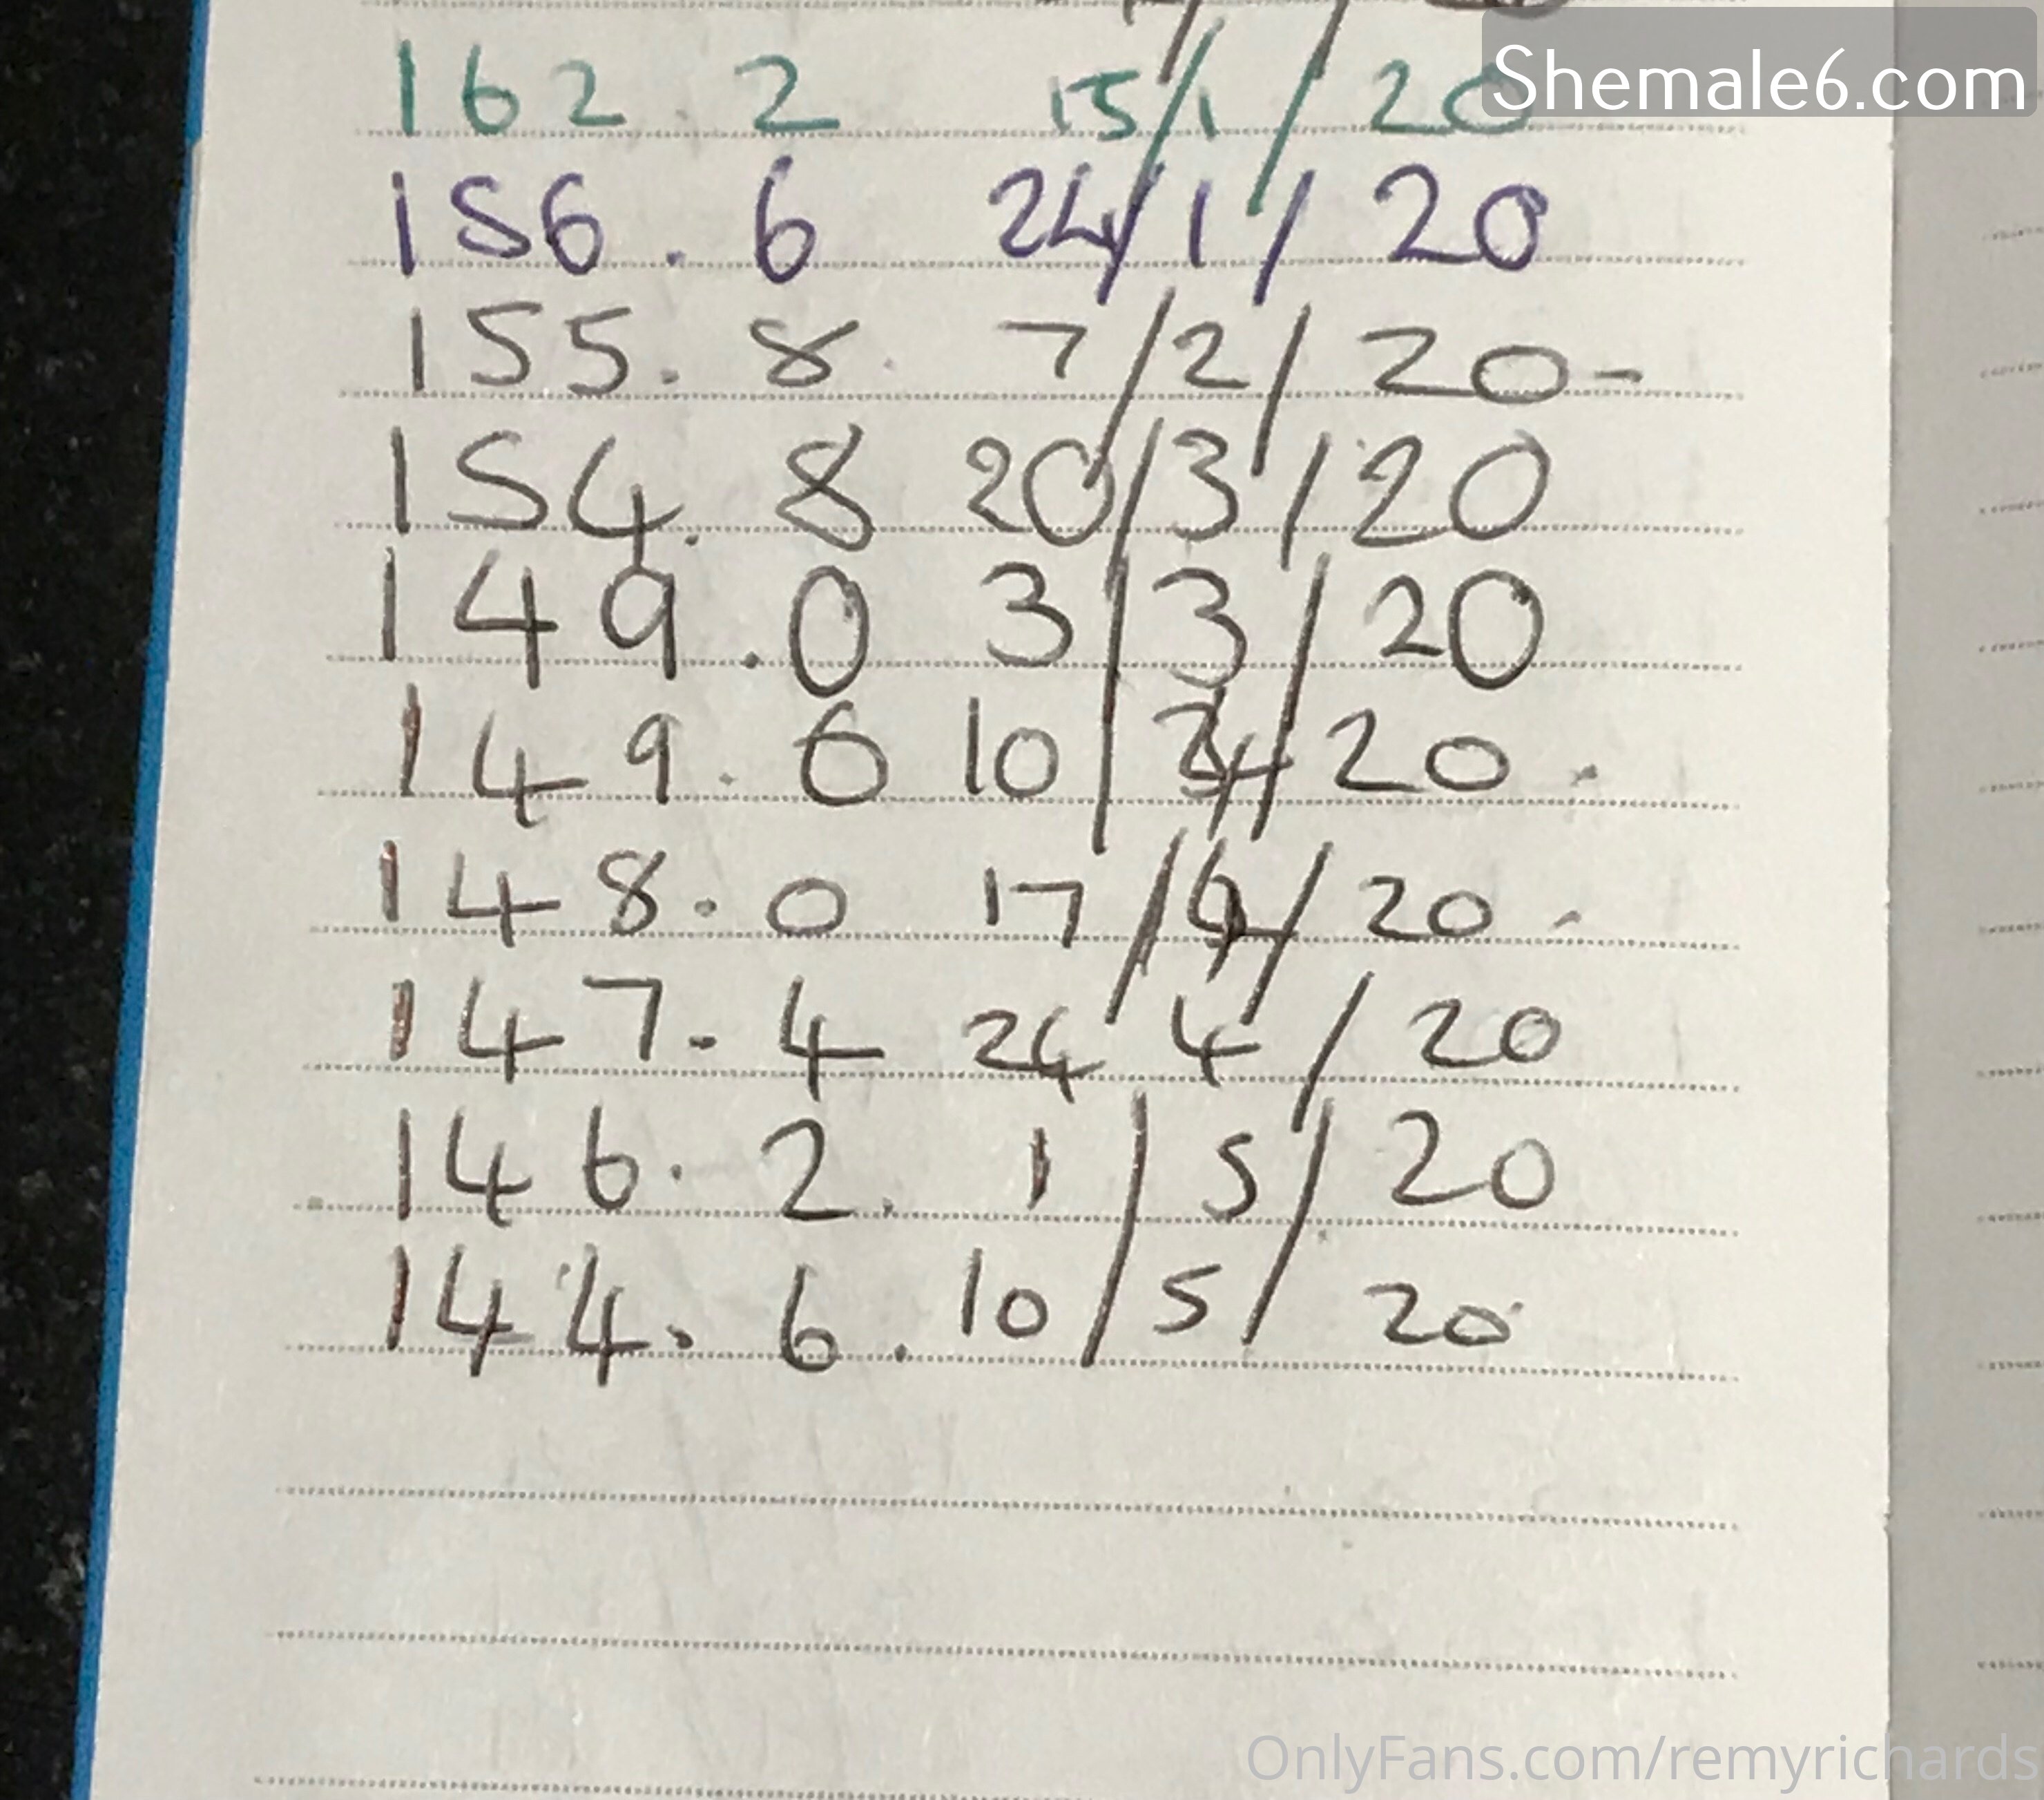 Shemale6.com
162.2 15/1/20
156.6 24/1/20
155.8. 7/2/20-
154.8 20/3/20
149.0 3/3/20
149.6 10/4/20.
148.0 17/4/20-
147.4 24 4/20
146.2. 1/5/20
144.6. 10/5/20
OnlyFans.com/remyrichards